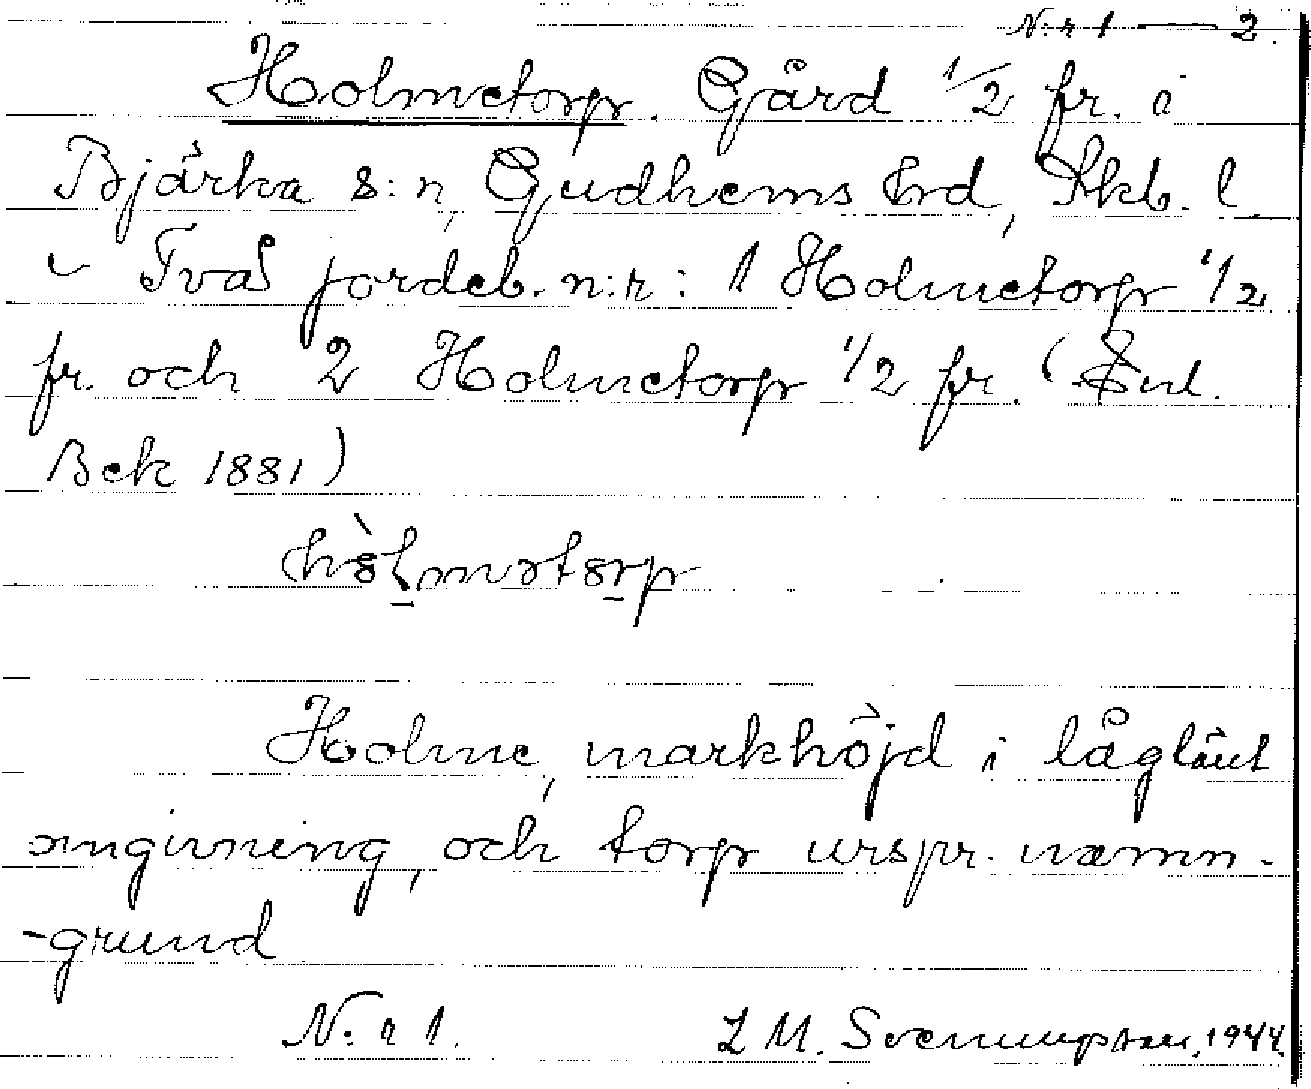 N:r 1 — 2.
Holmetorp. Gård 1/2 fr. i
Bjärka s:n, Gudhems hrd, Skb. l.
Två jordeb. n:r : 1 Holmetorp 1/2
fr. och 2 Holmetorp 1/2 fr. (Enl.
Bek 1881)
Holme, markhöjd i låglänt
omgivning, och torp urspr. namn-
-grund
N:r 1. L M. Svenungsson, 1944.